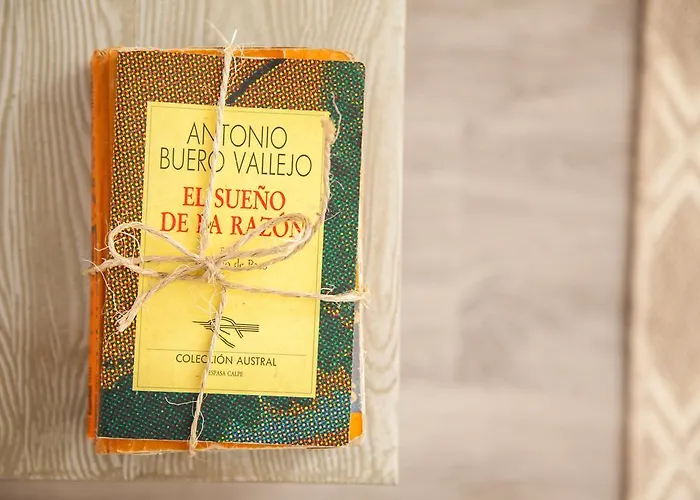 ANTONIO
BUERO VALLEJO
EL SUEÑO
DE LA RAZÓN
de Paco
COLECCIÓN AUSTRAL
ESPASA CALPE